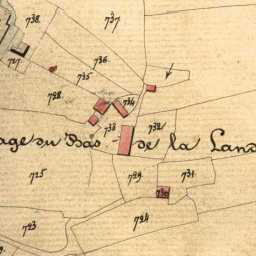 738.
737.
736.
727.
735.
728.
734.
733
732.
age du Bas de la Land
725
729.
731.
730
723
724